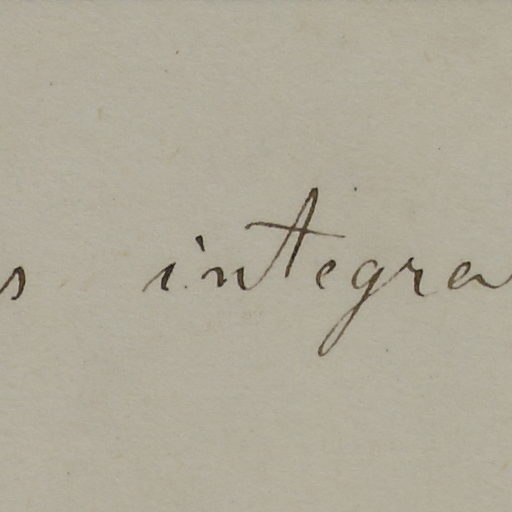 s integra